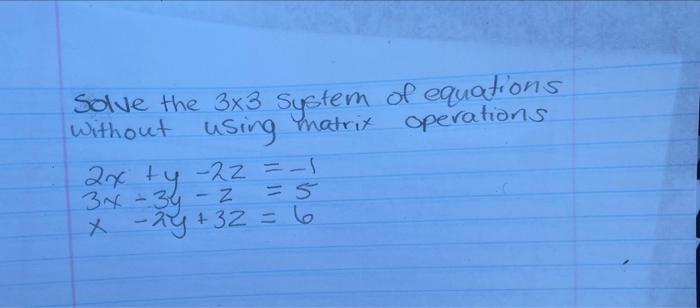 Solve the 3x3 system of equations
without using matrix operations
2x + y - 2z = -1
3x - 3y - z = 5
x - 2y + 3z = 6